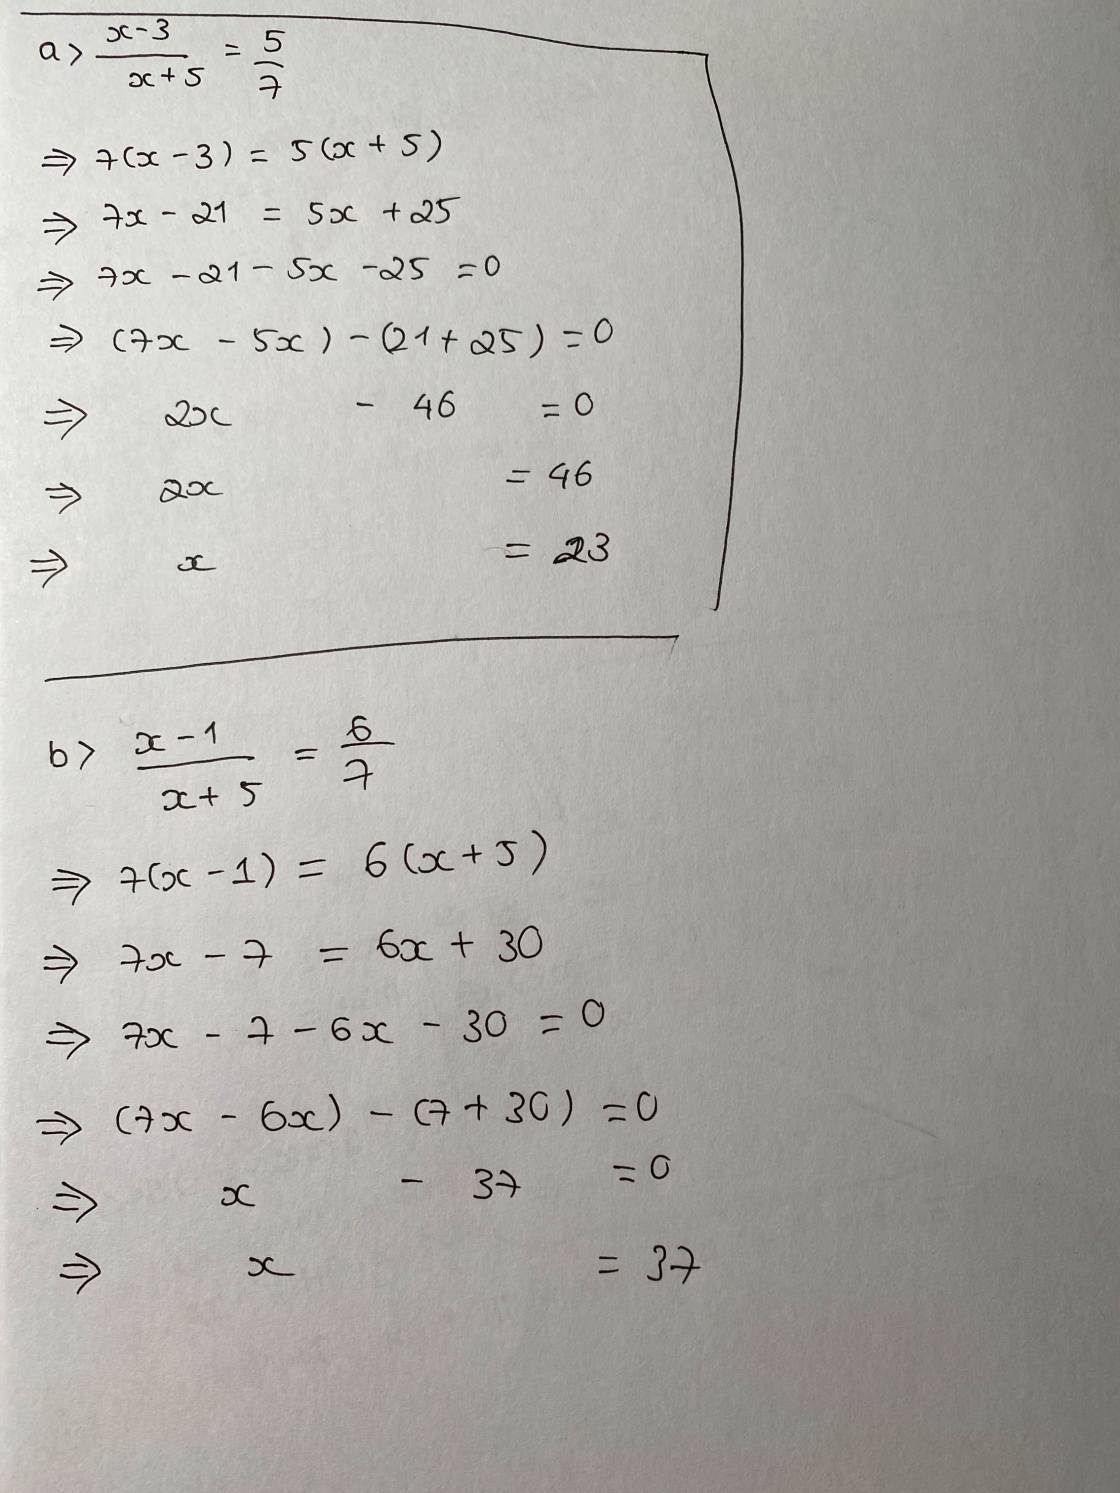 a> x-3/x+5 = 5/7
⇒ 7(x-3) = 5(x+5)
⇒ 7x - 21 = 5x + 25
⇒ 7x - 21 - 5x - 25 = 0
⇒ (7x - 5x) - (21+25) = 0
⇒ 2x - 46 = 0
⇒ 2x = 46
⇒ x = 23
b> x-1/x+5 = 6/7
⇒ 7(x-1) = 6(x+5)
⇒ 7x - 7 = 6x + 30
⇒ 7x - 7 - 6x - 30 = 0
⇒ (7x - 6x) - (7+30) = 0
⇒ x - 37 = 0
⇒ x = 37